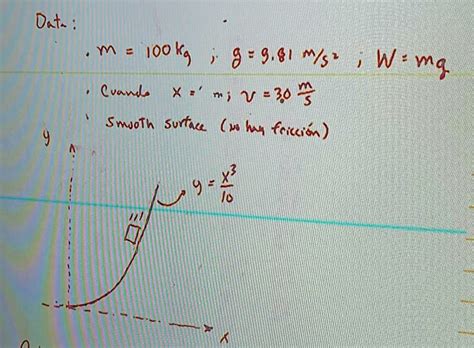 Data:
. m = 100 kg ; g = 9.81 m/s² ; W = mg
. Cuando x = ' m; v = 3.0 m/s
' Smooth surface (no hay fricción)
y
y = x³/10
x